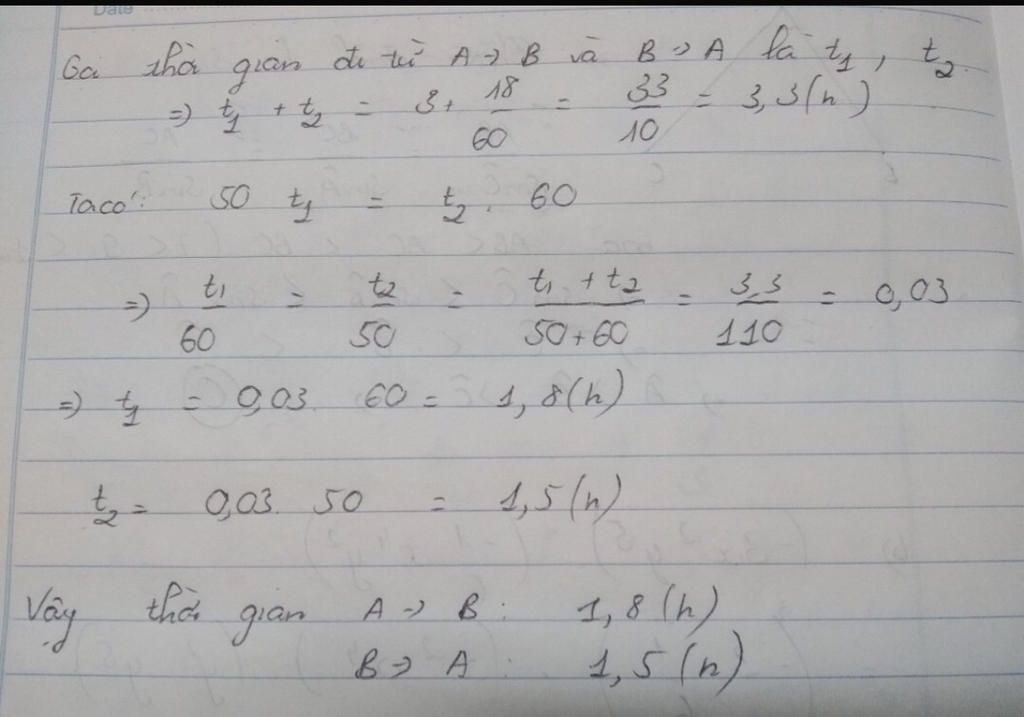 Date
Gọi thời gian đi từ A → B và B → A là t₁, t₂.
⇒ t₁ + t₂ = 3 + 18/60 = 33/10 = 3,3 (h)
Ta có: 50 t₁ = t₂ . 60
⇒ t₁/60 = t₂/50 = (t₁ + t₂)/(50+60) = 3,3/110 = 0,03
⇒ t₁ = 0,03 . 60 = 1,8 (h)
t₂ = 0,03 . 50 = 1,5 (h)
Vậy thời gian A → B : 1,8 (h)
B → A : 1,5 (h)